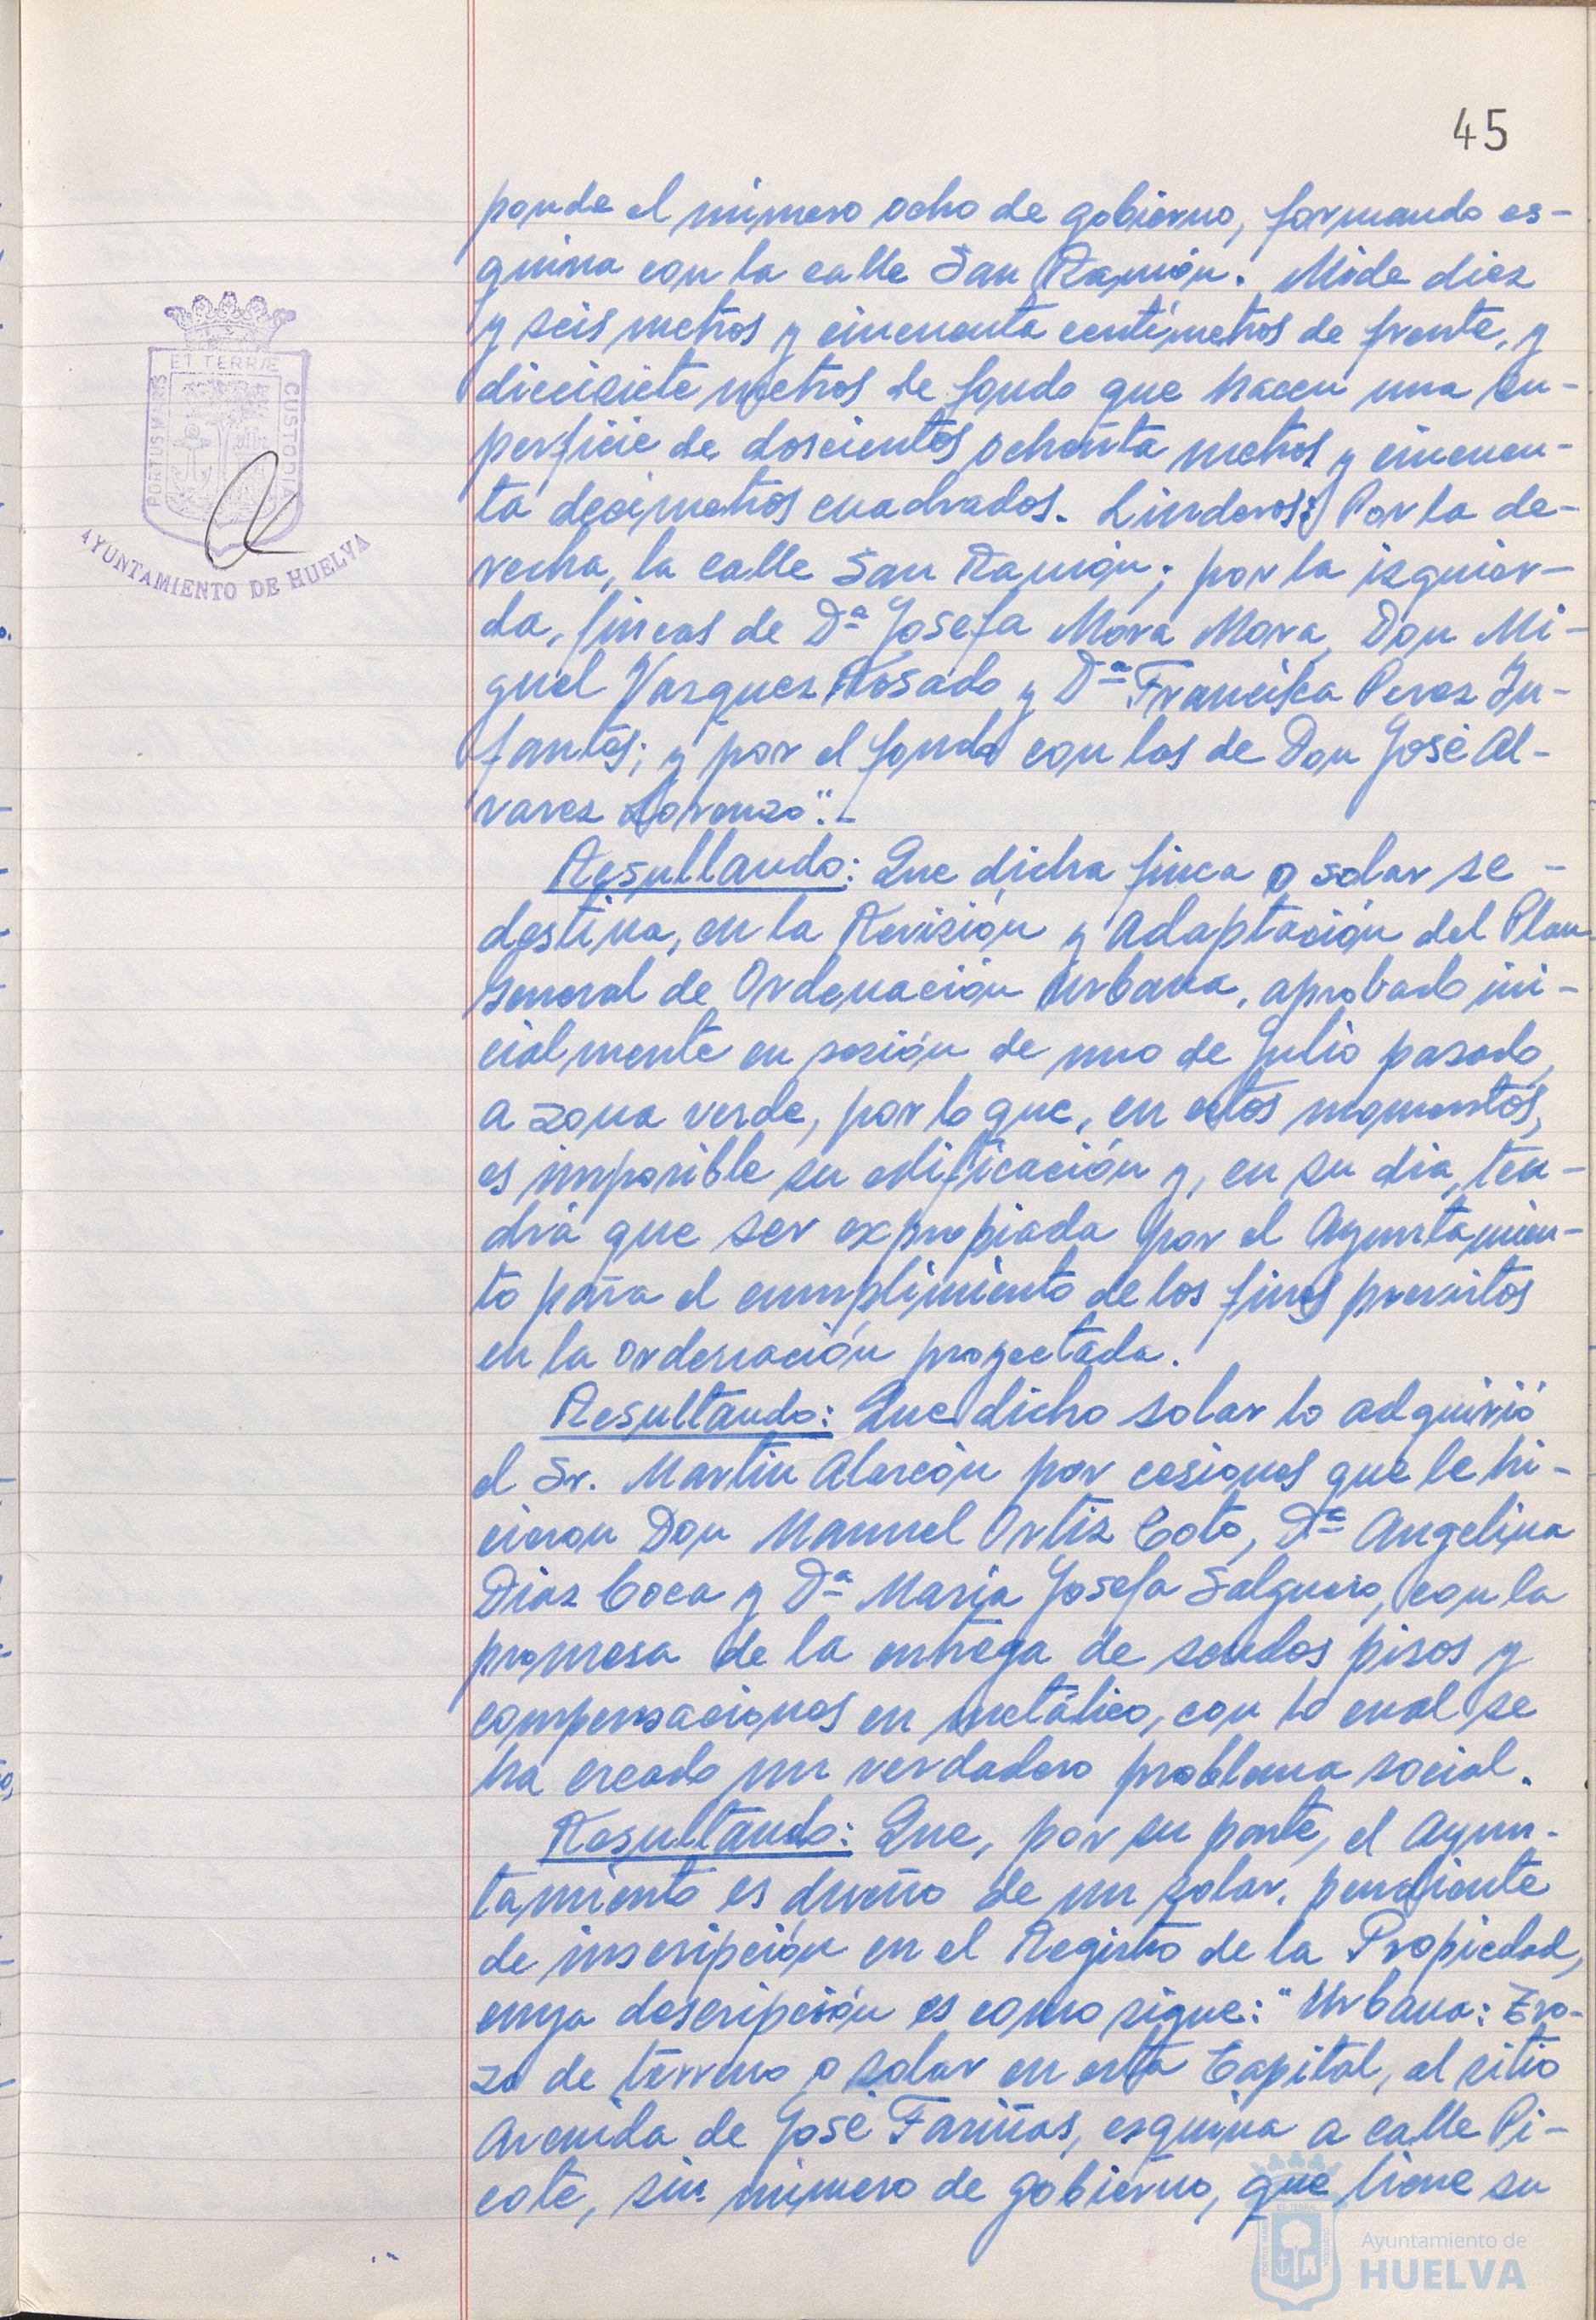 45
ponde el número ocho de gobierno, formando es-
quina con la calle San Ramón. Mide diez
y seis metros y cincuenta centímetros de frente, y
diecisiete metros de fondo que hacen una su-
perficie de doscientos ochenta metros y cincuen-
ta decimetros cuadrados. Linderos: Por la de-
recha, la calle San Ramón; por la izquier-
da, fincas de Dª Josefa Mora Mora, Don Mi-
guel Vazquez Rosado y Dª Francisca Perez In-
fantes; y por el fondo con las de Don José Al-
varez Lorenzo".-
Resultando: Que dicha finca o solar se -
destina, en la Revisión y Adaptación del Plan
General de Ordenación Urbana, aprobado ini-
cialmente en sesión de uno de Julio pasado,
a zona verde, por lo que, en estos momentos,
es imposible su edificación y, en su dia, ten-
drá que ser expropiada por el Ayuntamien-
to para el cumplimiento de los fines previstos
en la ordenación proyectada.
Resultando: Que dicho solar lo adquirió
el Sr. Martin Alarcón por cesiones que le hi-
cieron Don Manuel Ortiz Coto, Dª Angelina
Diaz Coca y Dª Maria Josefa Salguero, con la
promesa de la entrega de sendos pisos y
compensaciones en metálico, con lo cual se
ha creado un verdadero problema social.
Resultando: Que, por su parte, el Ayun-
tamiento es dueño de un solar, pendiente
de inscripción en el Registro de la Propiedad,
cuya descripción es como sigue: "Urbana: Tro-
zo de terreno o solar en esta Capital, al sitio
Avenida de José Fariñas, esquina a calle Pi-
cote, sin número de gobierno, que tiene su
PORTUS MARIS ET TERRÆ CUSTODIA
AYUNTAMIENTO DE HUELVA
Ayuntamiento de
HUELVA